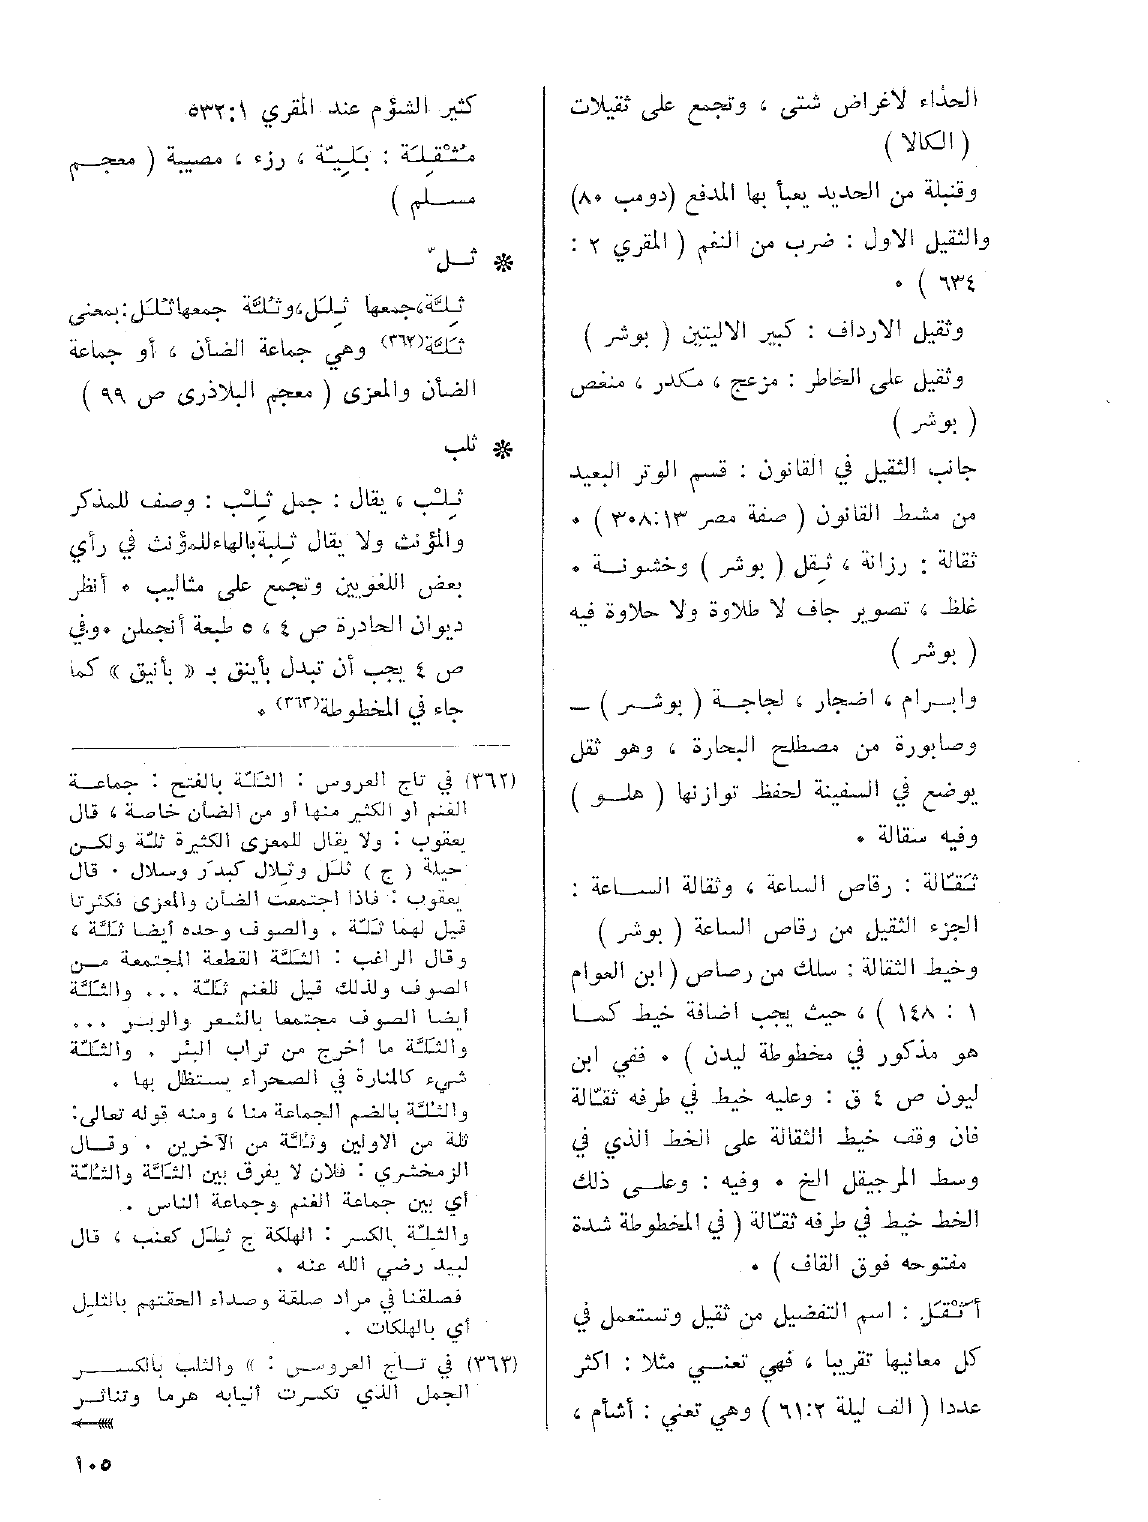 الحذاء لاغراض شتى ، وتجمع على ثقيلات
( الكالا )
وقنبلة من الحديد يعبأ بها المدفع (دومب ٨٠)
والثقيل الاول : ضرب من النغم ( المقري ٢ :
٦٣٤ ) ٠
وثقيل الارداف : كبير الاليتين ( بوشر )
وثقيل على الخاطر : مزعج ، مكدر ، منغص
( بوشر )
جانب الثقيل في القانون : قسم الوتر البعيد
من مشط القانون ( صفة مصر ٣٠٨:١٣ ) ٠
ثقالة : رزانة ، ثِقل ( بوشر ) وخشونة ٠
غلظ ، تصوير جاف لا طلاوة ولا حلاوة فيه
( بوشر )
وابرام ، اضجار ، لجاجة ( بوشر ) –
وصابورة من مصطلح البحارة ، وهو ثقل
يوضع في السفينة لحفظ توازنها ( هلو )
وفيه سقالة ٠
ثَقّالة : رقاص الساعة ، وثقالة الساعة :
الجزء الثقيل من رقاص الساعة ( بوشر )
وخيط الثقالة : سلك من رصاص ( ابن العوام
١ : ١٤٨ ) ، حيث يجب اضافة خيط كما
هو مذكور في مخطوطة ليدن ) ٠ ففي ابن
ليون ص ٤ ق : وعليه خيط في طرفه ثقّالة
فان وقف خيط الثقالة على الخط الذي في
وسط المرجيقل الخ ٠ وفيه : وعلى ذلك
الخط خيط في طرفه ثقّالة ( في المخطوطة شدة
مفتوحه فوق القاف ) ٠
أَثْقَل : اسم التفضيل من ثقيل وتستعمل في
كل معانيها تقريبا ، فهي تعني مثلا : اكثر
عددا ( الف ليلة ٦١:٢ ) وهي تعني : أشأم ،
كثير الشؤم عند المقري ٥٣٢:١
مُثْقِلة : بَلِيّة ، رزء ، مصيبة ( معجم
مسلم )
❊ ثلّ
ثِلَّة،جمعها ثِلَل،وثُلَّة جمعهاثُلَل:بمعنى
ثَلَّة(٣٦٢) وهي جماعة الضأن ، أو جماعة
الضأن والمعزى ( معجم البلاذرى ص ٩٩ )
❊ ثلب
ثِلْب ، يقال : جمل ثِلْب : وصف للمذكر
والمؤنث ولا يقال ثلبة بالهاء للمؤنث في رأي
بعض اللغويين وتجمع على مثاليب ٠ أنظر
ديوان الحادرة ص ٤ ، ٥ طبعة أنجملن ٠وفي
ص ٤ يجب أن تبدل بأينق بـ « بأنيق » كما
جاء في المخطوطة(٣٦٣) ٠
(٣٦٢) في تاج العروس : الثَلّة بالفتح : جماعة
الغنم أو الكثير منها أو من الضأن خاصة ، قال
يعقوب : ولا يقال للمعزى الكثيرة ثلة ولكن
حيلة ( ج ) ثلل وثلال كبدر وسلال ٠ قال
يعقوب : فاذا اجتمعت الضأن والمعزى فكثرتا
قيل لهما ثَلّة . والصوف وحده أيضا ثَلّة ،
وقال الراغب : الثَلَّة القطعة المجتمعة من
الصوف ولذلك قيل للغنم ثَلّة ... والثَلّة
أيضا الصوف مجتمعا بالشعر والوبر ...
والثَلّة ما أخرج من تراب البئر . والثَلّة
شيء كالمنارة في الصحراء يستظل بها .
والثُلَّة بالضم الجماعة منا ، ومنه قوله تعالى:
ثلة من الاولين وثلّة من الآخرين . وقال
الزمخشري : فلان لا يفرق بين الثَلّة والثُلّة
أي بين جماعة الغنم وجماعة الناس .
والثِلّة بالكسر : الهلكة ج ثِلَل كعنب ، قال
لبيد رضي الله عنه .
فصلقنا في مراد صلقة وصداء الحقتهم بالثلل
أي بالهلكات .
(٣٦٣) في تاج العروس : » والثلب بالكسر
الجمل الذي تكسرت أنيابه هرما وتناثر
١٠٥